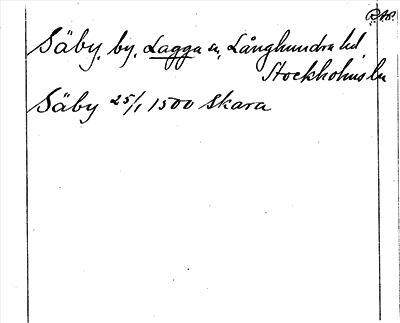 Säby, by, Lagga sn, Långhundra hd
Stockholms ln
Säby 25/1 1500 Skara